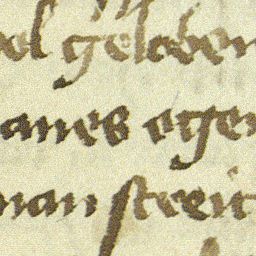 ol geloben
anes eigen
man streit